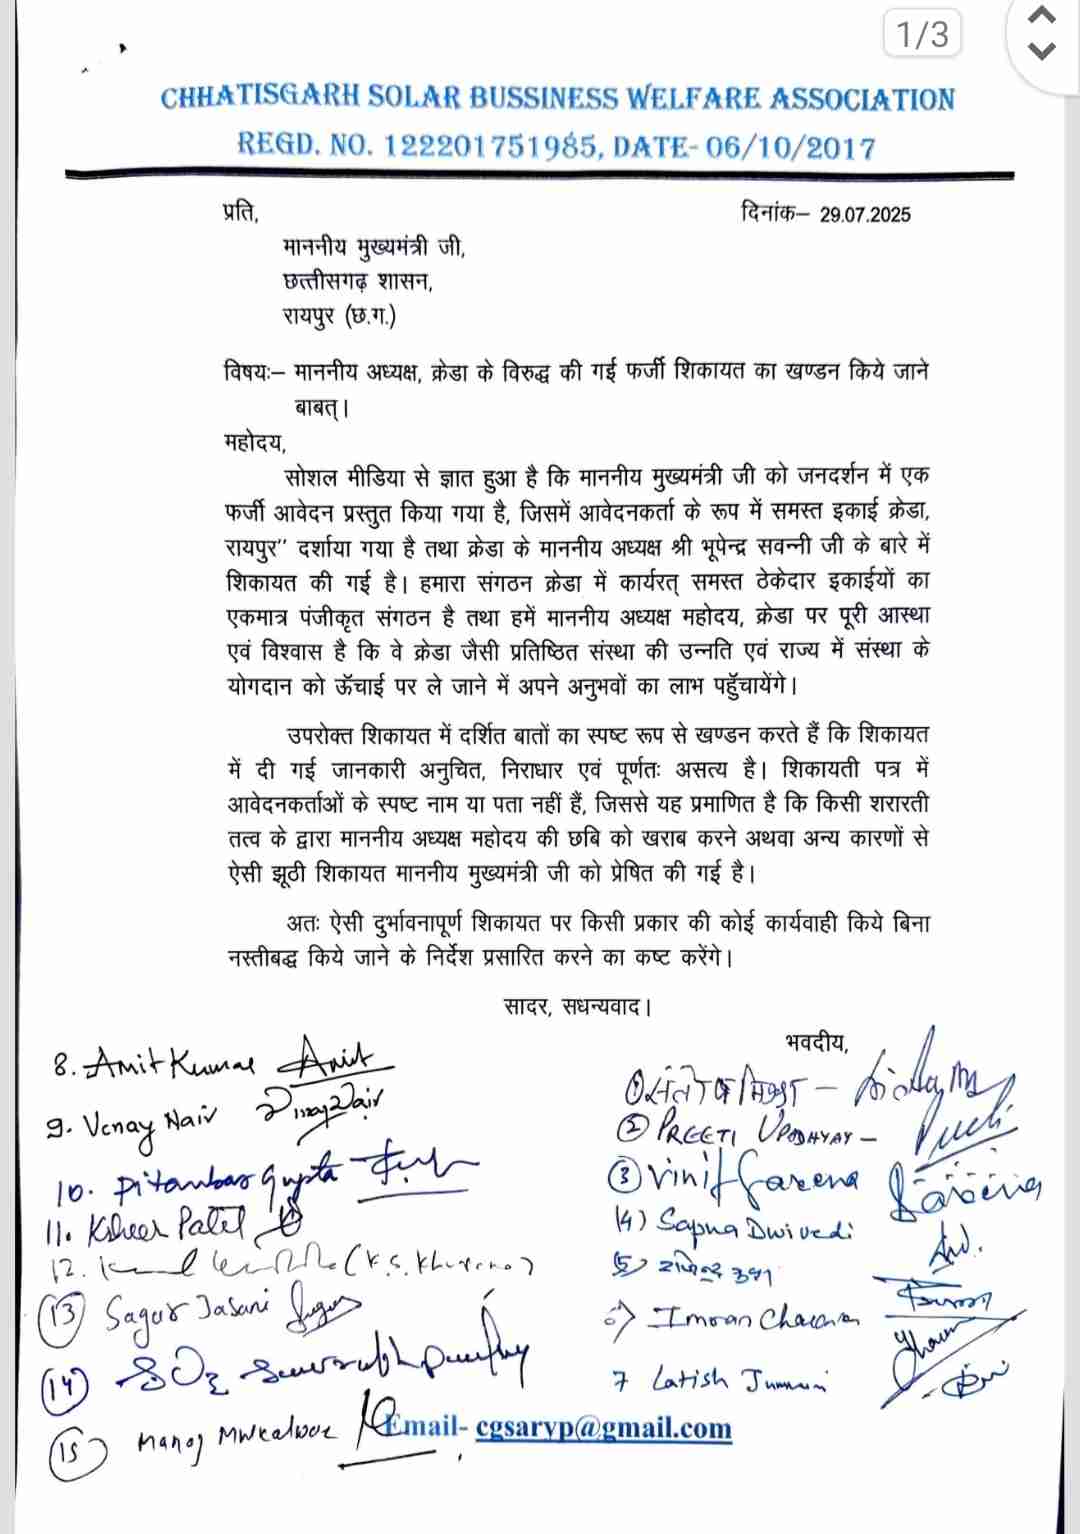 1/3
CHHATISGARH SOLAR BUSSINESS WELFARE ASSOCIATION
REGD. NO. 122201751985, DATE- 06/10/2017
प्रति,
दिनांक– 29.07.2025
माननीय मुख्यमंत्री जी,
छत्तीसगढ़ शासन,
रायपुर (छ.ग.)
विषयः– माननीय अध्यक्ष, क्रेडा के विरुद्ध की गई फर्जी शिकायत का खण्डन किये जाने
बाबत्।
महोदय,
सोशल मीडिया से ज्ञात हुआ है कि माननीय मुख्यमंत्री जी को जनदर्शन में एक
फर्जी आवेदन प्रस्तुत किया गया है, जिसमें आवेदनकर्ता के रूप में समस्त इकाई क्रेडा,
रायपुर" दर्शाया गया है तथा क्रेडा के माननीय अध्यक्ष श्री भूपेन्द्र सवन्नी जी के बारे में
शिकायत की गई है। हमारा संगठन क्रेडा में कार्यरत् समस्त ठेकेदार इकाईयों का
एकमात्र पंजीकृत संगठन है तथा हमें माननीय अध्यक्ष महोदय, क्रेडा पर पूरी आस्था
एवं विश्वास है कि वे क्रेडा जैसी प्रतिष्ठित संस्था की उन्नति एवं राज्य में संस्था के
योगदान को ऊँचाई पर ले जाने में अपने अनुभवों का लाभ पहुँचायेंगे।
उपरोक्त शिकायत में दर्शित बातों का स्पष्ट रूप से खण्डन करते हैं कि शिकायत
में दी गई जानकारी अनुचित, निराधार एवं पूर्णतः असत्य है। शिकायती पत्र में
आवेदनकर्ताओं के स्पष्ट नाम या पता नहीं हैं, जिससे यह प्रमाणित है कि किसी शरारती
तत्व के द्वारा माननीय अध्यक्ष महोदय की छबि को खराब करने अथवा अन्य कारणों से
ऐसी झूठी शिकायत माननीय मुख्यमंत्री जी को प्रेषित की गई है।
अतः ऐसी दुर्भावनापूर्ण शिकायत पर किसी प्रकार की कोई कार्यवाही किये बिना
नस्तीबद्ध किये जाने के निर्देश प्रसारित करने का कष्ट करेंगे।
सादर, सधन्यवाद।
भवदीय,
① संतोष
② PREETI UPADHYAY –
③ Vinit Saxena Saxena
(4) Sapna Dwivedi
5)
6) Imran
7 Latish
8. Amit Kumar Amit
9. Vinay Nair Vinay Nair
10. Pitambar Gupta
11. Kisheer Patel
12. (K.S. Khurana)
(13) Sagar Jasani
(14)
(15) Manoj
Email- cgsaryp@gmail.com